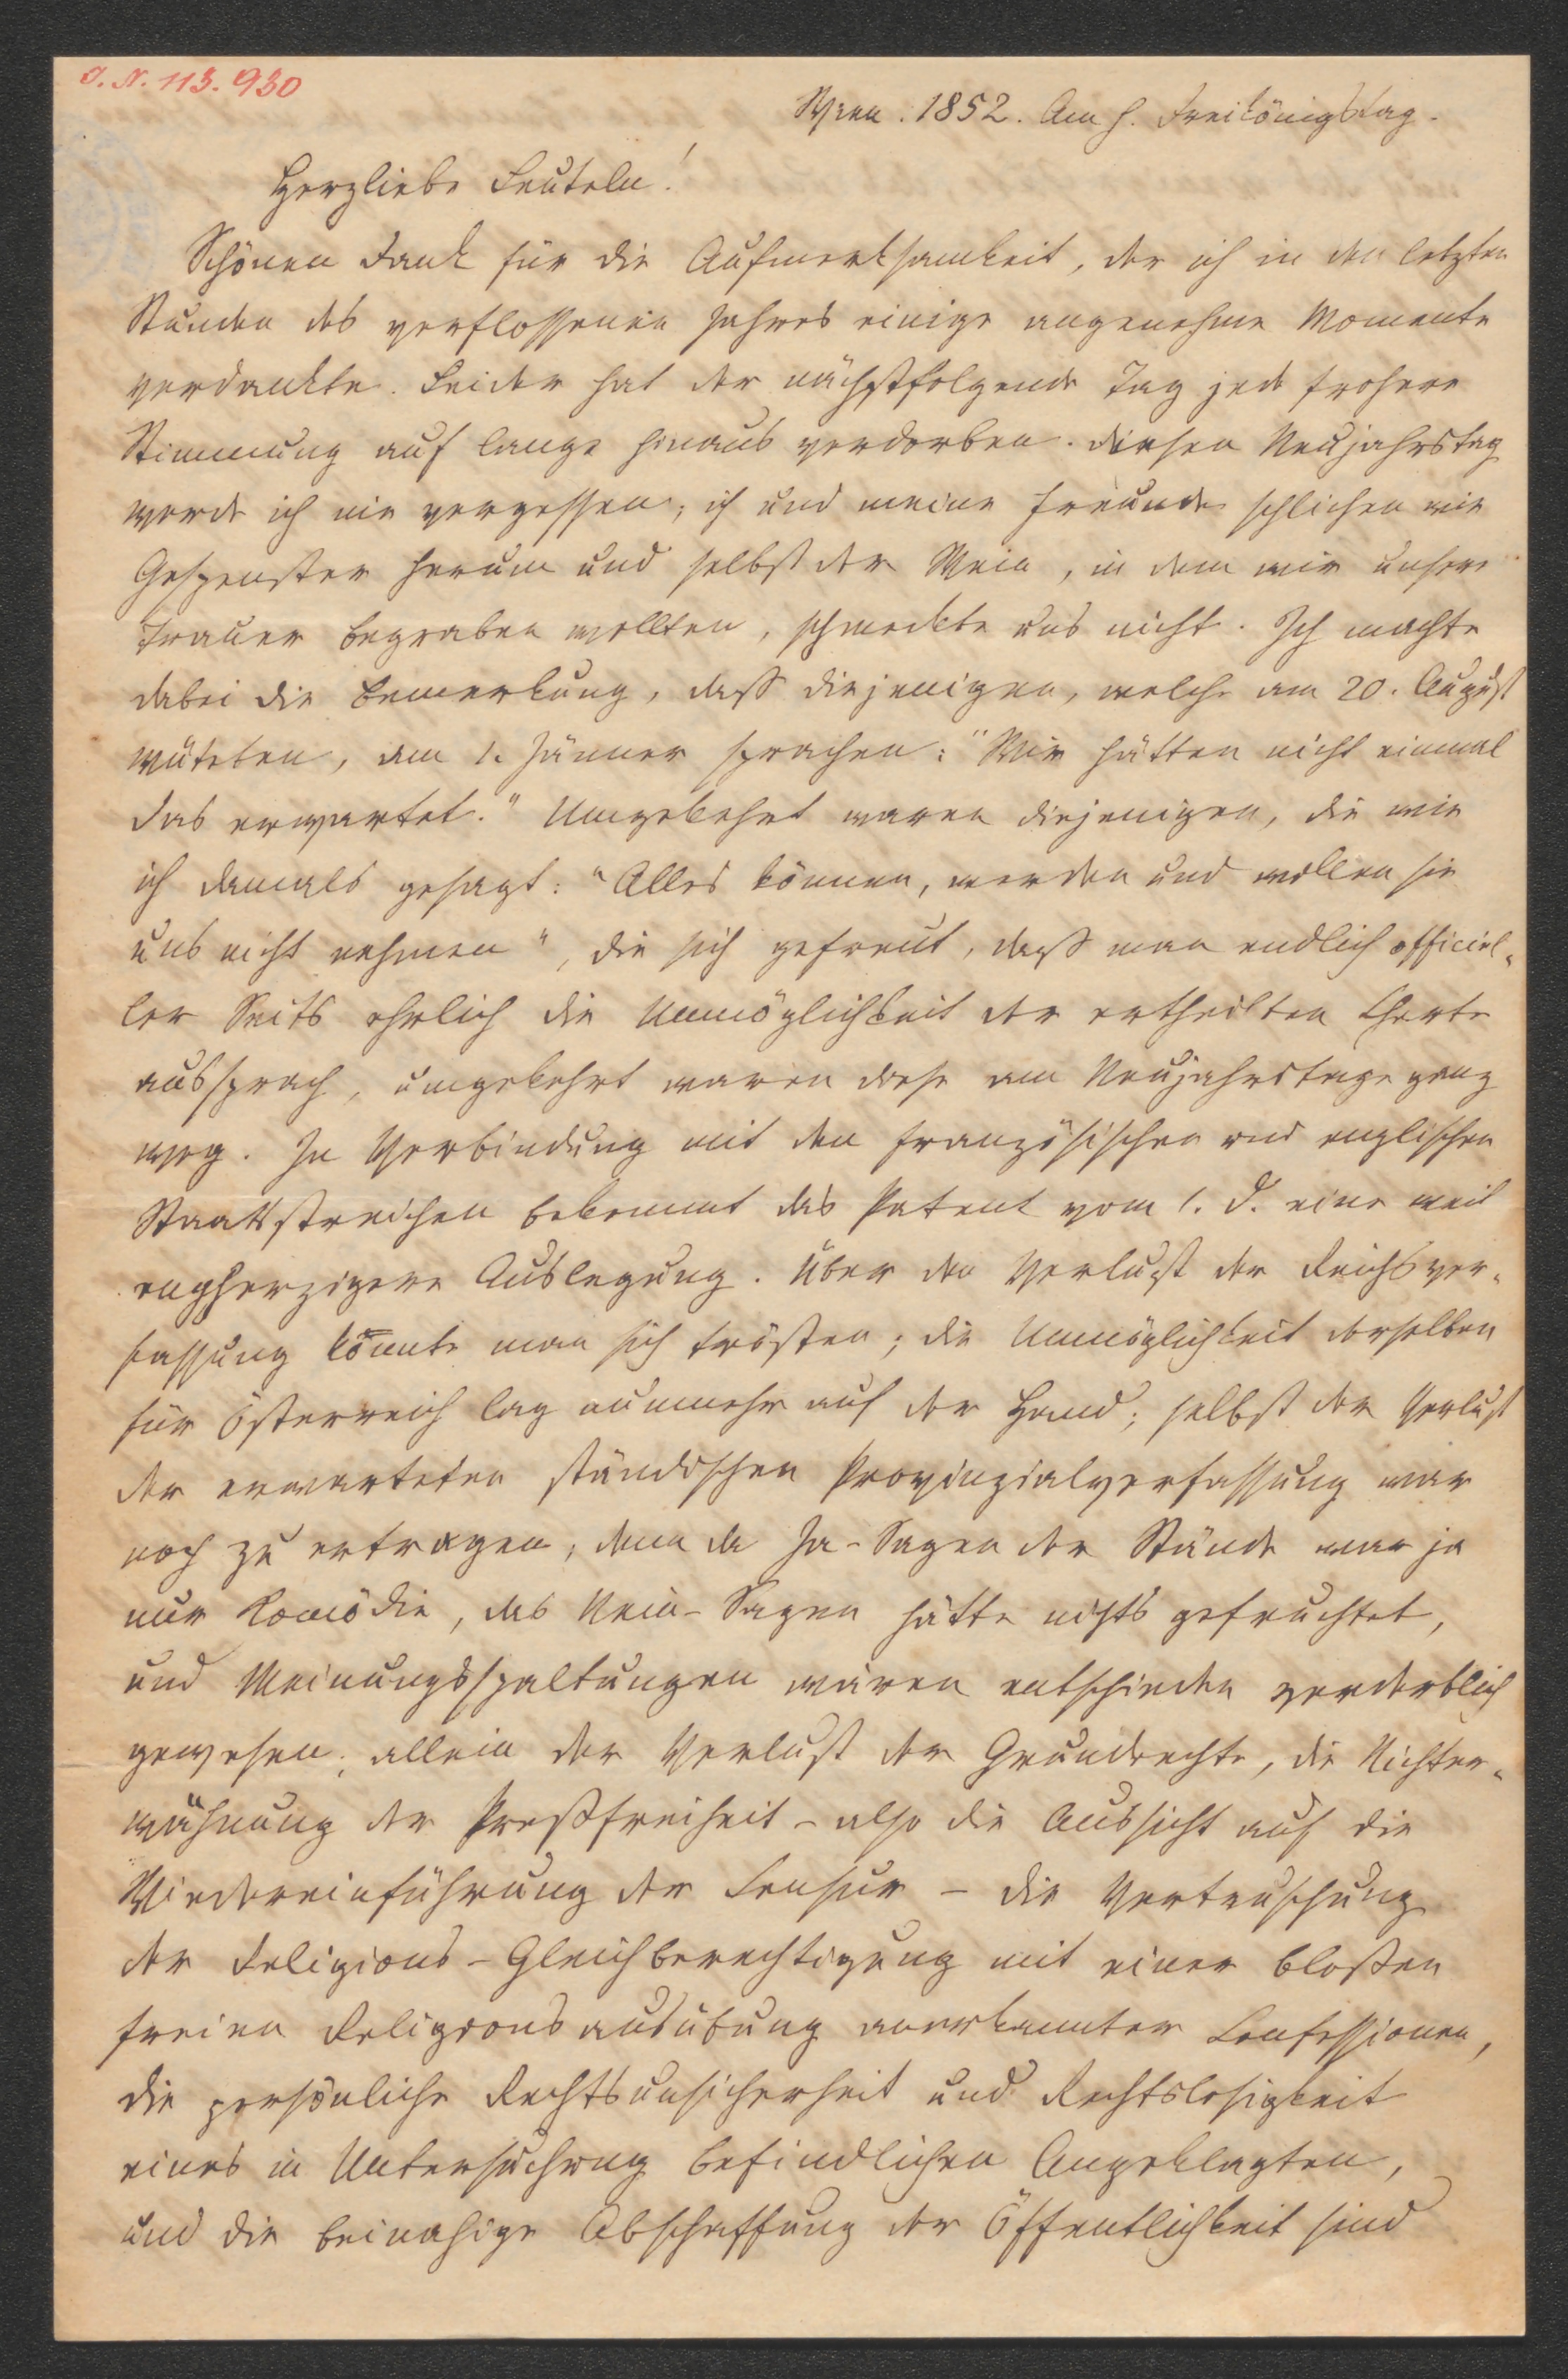 I. N. 113.930
Wien. 1852. Am h. Dreikönigstag.
Herzliebe Leuteln!
Schönen Dank für die Aufmerksamkeit, der ich in den letzten
Stunden des verflossenen Jahres einige angenehme Momente
verdankte. Leider hat der nächstfolgende Tag jede frohere
Stimmung auf lange hinaus verdorben. Diesen Neujahrstag
werde ich nie vergessen; ich und meine Freunde schlichen wie
Gespenster herum und selbst der Wein, in dem wir unsere
Trauer begraben wollten, schmeckte uns nicht. Ich machte
dabei die Bemerkung, dass diejenigen, welche am 20. August
wüteten, am 1. Jänner sprachen: "Wir hätten nicht einmal
das erwartet." Umgekehrt waren diejenigen, die wie
ich damals gesagt: "Alles können, werden und wollen sie
uns nicht nehmen", die sich gefreut, dass man endlich officiel-
ler Seits ehrlich die Unmöglichkeit der ertheilten Charte
aussprach, umgekehrt waren diese am Neujahrstage ganz
weg. In Verbindung mit den französischen und englischen
Staatsstreichen bekommt das Patent vom 1. d. eine weit
engherzigere Auslegung. Über den Verlust der Reichsver-
fassung könnte man sich trösten; die Unmöglichkeit derselben
für Österreich lag nunmehr auf der Hand; selbst der Verlust
der erwarteten ständischen Provinzialverfassung war
noch zu ertragen, denn da Ja-Sagen der Stände war ja
nur Komödie, das Nein-Sagen hätte nichts gefruchtet,
und Meinungsspaltungen wären entschieden verderblich
gewesen; allein der Verlust der Grundrechte, die Nichter-
wähnung der Preßfreiheit - also die Aussicht auf die
Wiedereinführung der Censur - die Vertauschung
der Religions-Gleichberechtigung mit einer bloßen
freien Religionsausübung anerkannter Confessionen,
die persönliche Rechtsunsicherheit und Rechtslosigkeit
eines in Untersuchung befindlichen Angeklagten,
und die beinahige Abschaffung der Öffentlichkeit sind